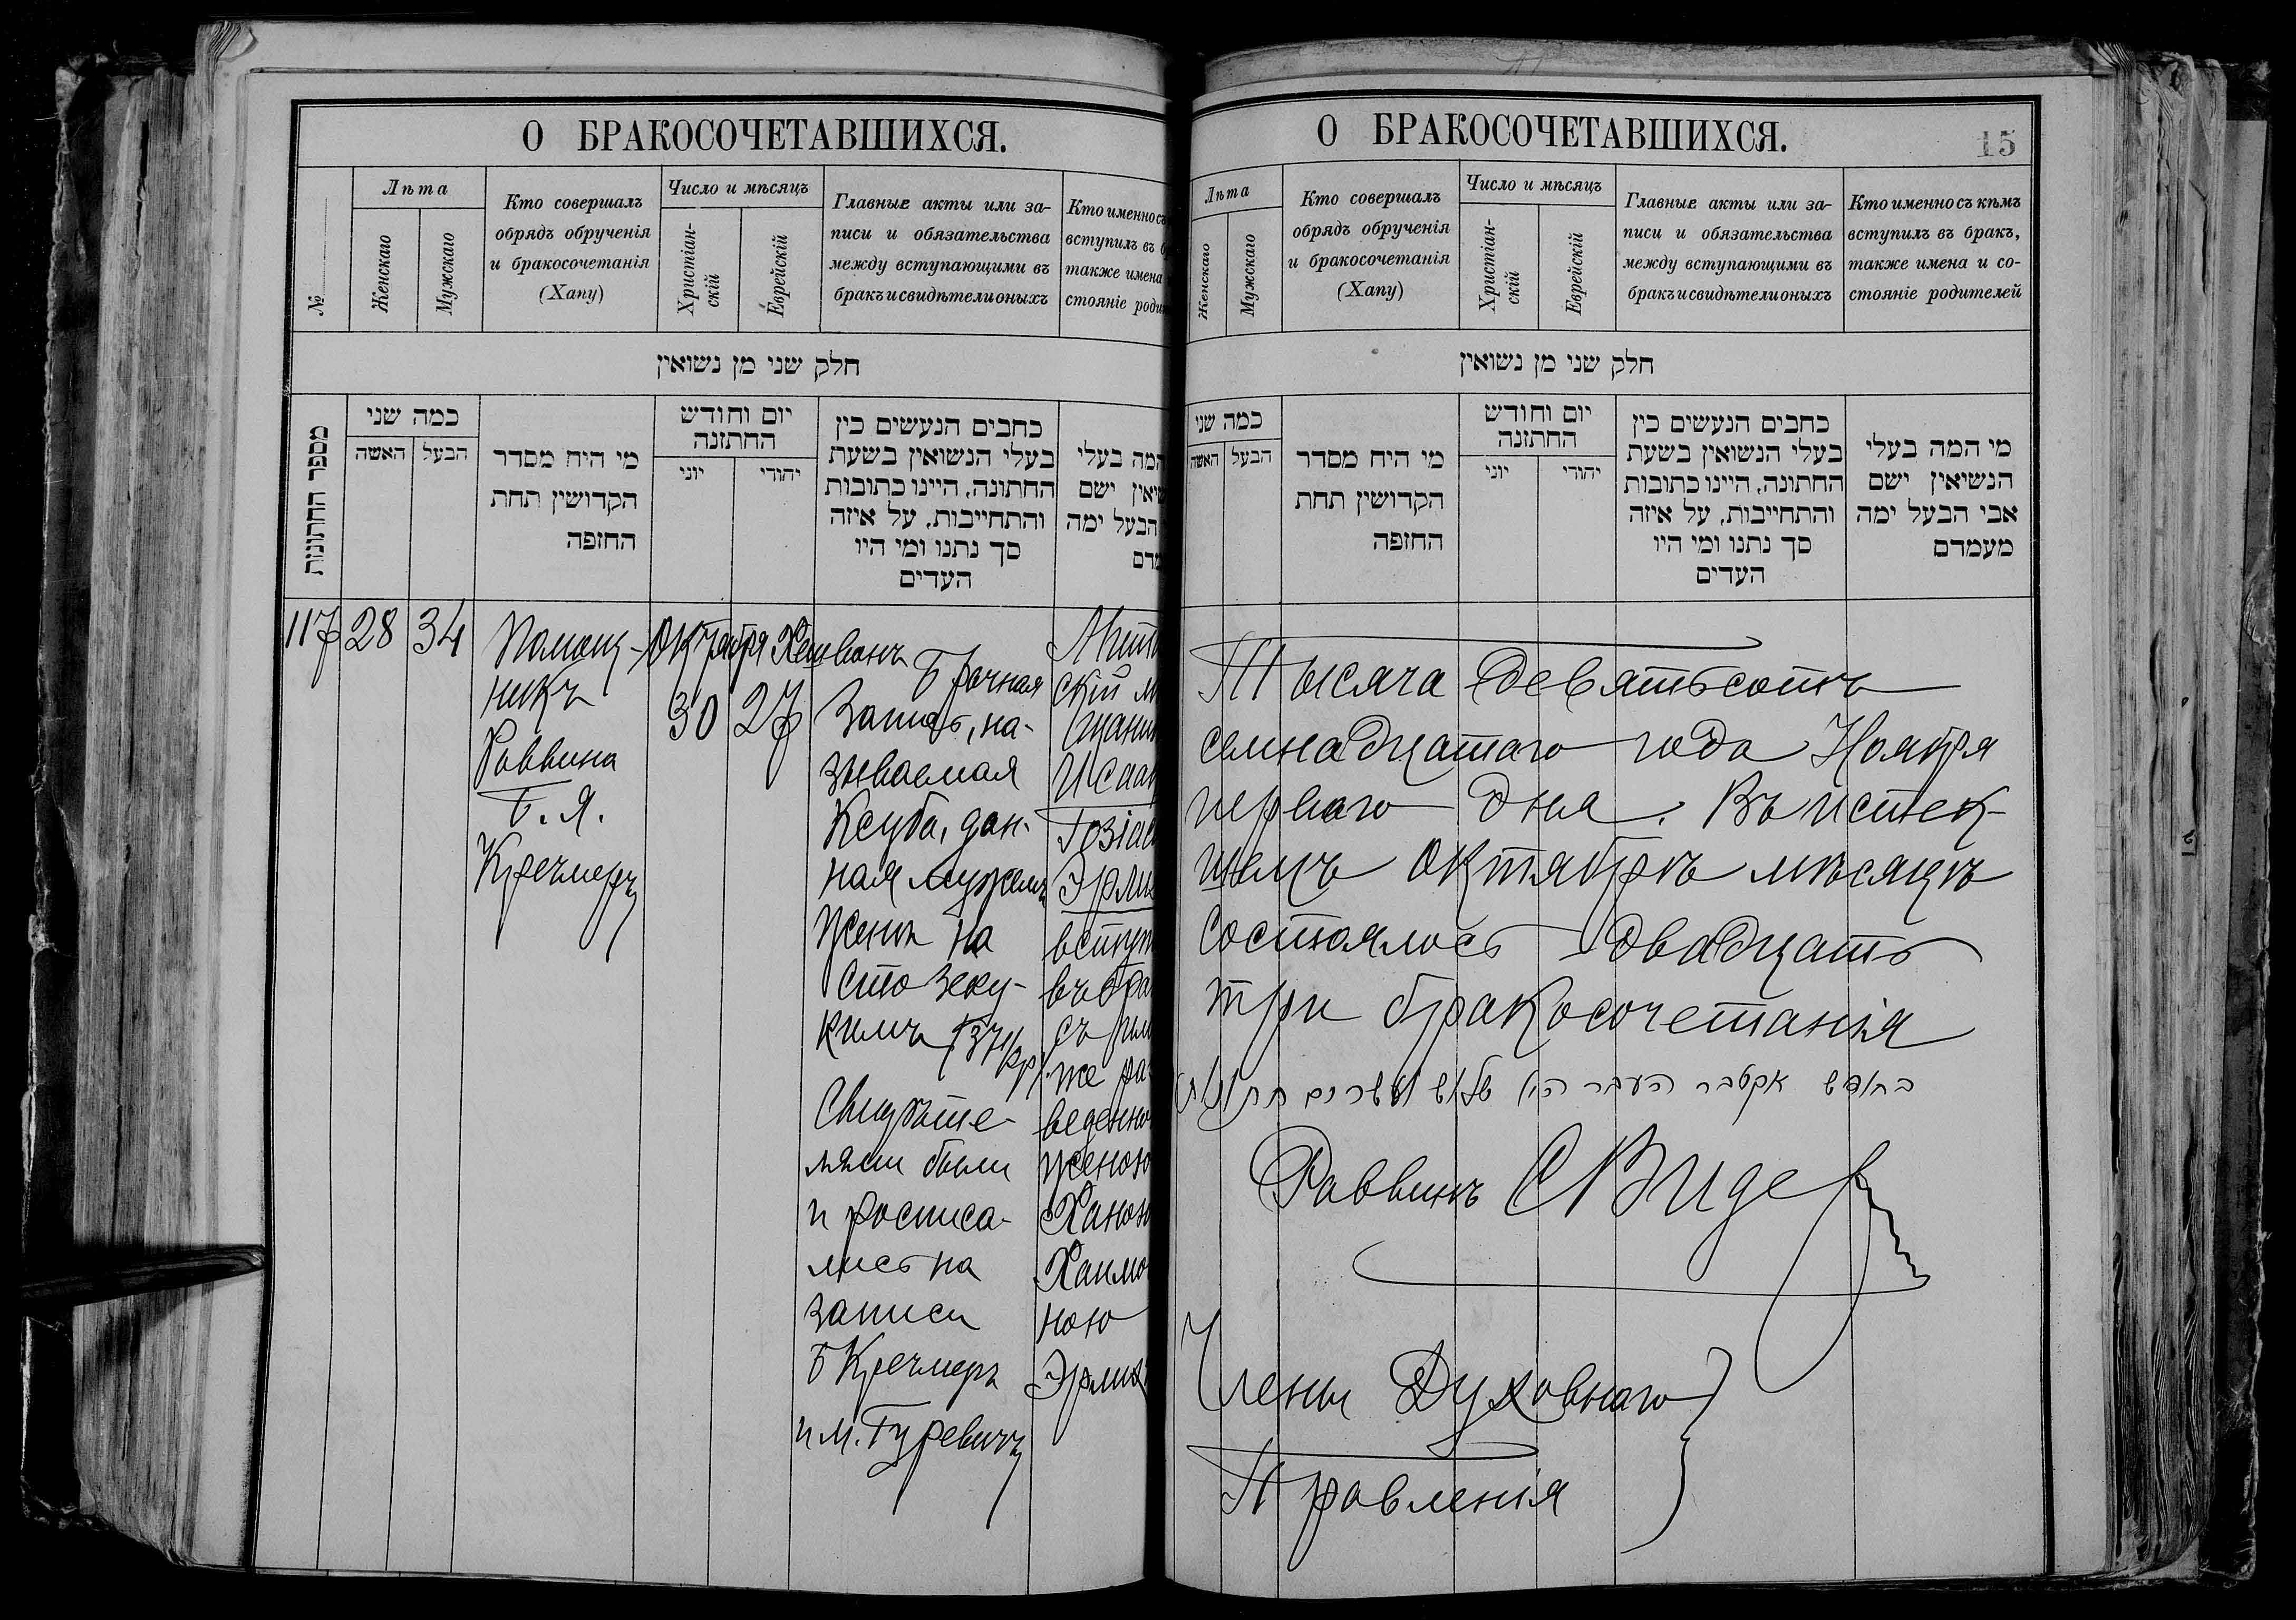 О БРАКОСОЧЕТАВШИХСЯ.
№
Лѣта
Женскаго
Мужскаго
Кто совершалъ
обрядъ обрученія
и бракосочетанія
(Хапу)
Число и мѣсяцъ
Христіан-
скій
Еврейскій
Главные акты или за-
писи и обязательства
между вступающими въ
бракъ и свидѣтели оныхъ
Кто именно съ
вступилъ въ б
также имена
стояніе роди
חלק שני מן נשואין
מספר החתונות
כמה שני
האשה
הבעל
מי היח מסדר
הקדושין תחת
החזפה
יום וחודש
החתזנה
יוני
יהודי
כחבים הנעשים כין
בעלי הנשואין בשעת
החתונה, היינו כתובות
והתחייבות, על איזה
סך נתנו ומי היו
העדים
המה בעלי
שיאין ישם
הבעל ימה
מדם
117
28
34
Помощ-
никъ
Раввина
Б. Я.
Кречмеръ
Октября
30
Хешванъ
27
Брачная
Запись, на-
зываемая
Ксуба, дан-
ная мужемъ
женѣ на
сто зеку-
кимъ
Свидѣте-
лями были
и росписа-
лись на
записи
Б Кречмеръ
и М. Гуревичъ
скій м
щанин
Исаак
Іозіас
Эрли
вступ
въ бра
съ
же ра
веденно
женою
Ханою
Хаимо
ною
Эрлих
О БРАКОСОЧЕТАВШИХСЯ.
15
Лѣта
Женскаго
Мужскаго
Кто совершалъ
обрядъ обрученія
и бракосочетанія
(Хапу)
Число и мѣсяцъ
Христіан-
скій
Еврейскій
Главные акты или за-
писи и обязательства
между вступающими въ
бракъ и свидѣтели оныхъ
Кто именно съ кѣмъ
вступилъ въ бракъ,
также имена и со-
стояніе родителей
חלק שני מן נשואין
כמה שני
האשה
הבעל
מי היח מסדר
הקדושין תחת
החזפה
יום וחודש
החתזנה
יוני
יהודי
כחבים הנעשים כין
בעלי הנשואין בשעת
החתונה, היינו כתובות
והתחייבות, על איזה
סך נתנו ומי היו
העדים
מי המה בעלי
הנשיאין ישם
אבי הבעל ימה
מעמדם
Тысяча девятьсотъ
семнадцатаго года Ноября
перваго дня. Въ истек-
шемъ октябрѣ мѣсяцѣ
состоялось двадцать
три бракосочетанія
בחודש אקטבר העבר היו שלוש ועשרים חתונות
Раввинъ
Члены Духовнаго
Правленія